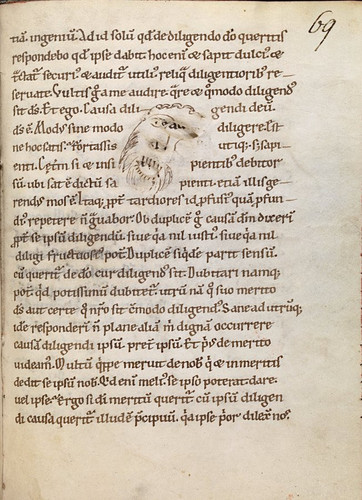 69
tiā. ingeniū. Ad id solū qd̄ de diligendo dō queritis
respondebo qd̄ ipse dabit. hoc eni᷑ & sapit dulci᷒. &
t̄ctat᷑ securi᷒. & audit᷑ utili᷒. reliq̄ diligentiorib᷒ re-
seruate. Vultis g̊ a me audire. q̄re & q̊ modo diligend᷒
sit ds̄. Et ego. Causa dili gendi deū.
ds̄ ē. Mod᷒ sine modo diligere. Est
ne hoc satis? Fortassis utiq;. s; sapi-
enti. Cet̄m si & insi pientib᷒ debitor
sū. ubi sat ē dictū sa pienti. etiā illis ge-
rend᷒ mos ē. Itaq; ꝓpt̄ tardiores id ipsū ꝓfusi᷒ quā ꝓfun-
di᷒ repetere n̄ g̊uabor. Ob duplicē g̊ causā dm̄ dixeri᷑
ꝓpt̄ se ipsū diligendū. siue q̇a nil iusti᷒. siue q̇a nil
diligi fructuosi᷒ pot̄. Duplicē siq̇dē parit sensū.
cū querit᷑ de dō cur diligend᷒ sit. Dubitari namq;
pot̄. q̇d potissimū dubitet᷑. utrū nā q̊ suo merito
ds̄ aut certe q̊ nr̄o sit cōmodo diligend᷒. Sane ad utrūq;
idē responderi᷑. n̄ plane aliā ṁ dignā occurrere
causā diligendi ipsū. pret̄ ipsū. Et ṗ᷒ de merito
uideam᷒. Multū q̇ppe meruit de nob̄. q̇ & inmeritis
dedit se ipsū nob̄. Q̇d eni᷑ meli᷒ se ipso poterat dare.
uel ipse? Ergo si di᷑ meritū querit᷑. cū ipsi᷒ diligen
di causa querit᷑. illud ē p̄cipuū. q̇a ipse ṗor dilex̄ nos.